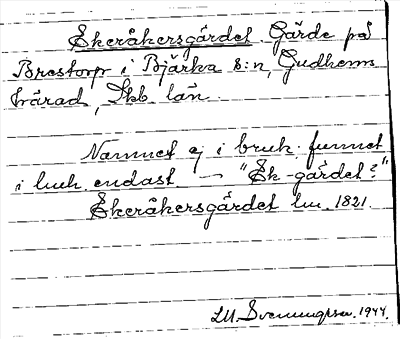 Ekeråkersgärdet. Gärde på
Brestorp i Bjärka s:n, Gudhems
härad, Skb. län.
Namnet ej i bruk. funnet
i huh. endast — "Ek-gärdet?"
Ekeråkersgärdet lm. 1821.
LM. Svenungsson. 1944.